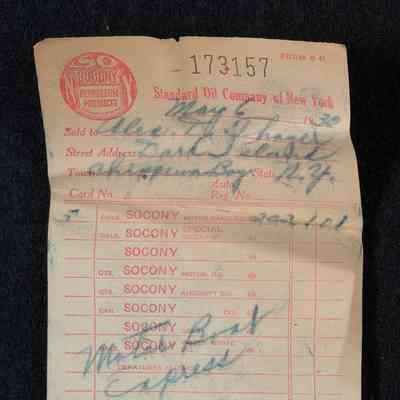 SO
SOCONY
PETROLEUM
PRODUCTS
173157
Standard Oil Company of New York
May 6 1930
Sold to Alex. R. Thayer
Street Address Dark Island
Town Chippewa Bay State N.Y.
Card No. Auto Reg. No.
5 GALS. SOCONY MOTOR GASOLINE 1.01
GALS. SOCONY SPECIAL
SOCONY
QTS. SOCONY MOTOR OIL
QTS. SOCONY AIRCRAFT OIL
CAN SOCONY
SOCONY
Motor Boat
Express